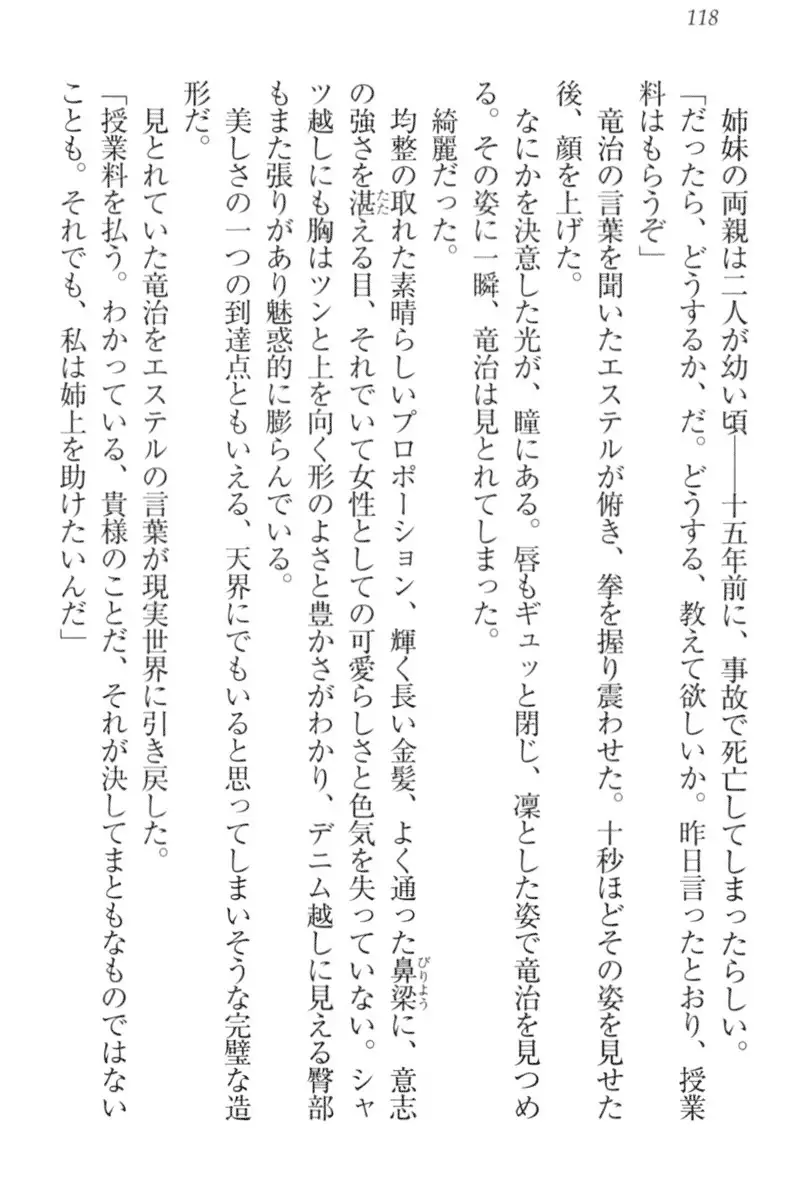 118
　姉妹の両親は二人が幼い頃――十五年前に、事故で死亡してしまったらしい。
「だったら、どうするか、だ。どうする、教えて欲しいか。昨日言ったとおり、授業
料はもらうぞ」
　竜治の言葉を聞いたエステルが俯き、拳を握り震わせた。十秒ほどその姿を見せた
後、顔を上げた。
　なにかを決意した光が、瞳にある。唇もギュッと閉じ、凜とした姿で竜治を見つめ
る。その姿に一瞬、竜治は見とれてしまった。
　綺麗だった。
　均整の取れた素晴らしいプロポーション、輝く長い金髪、よく通った鼻梁に、意志
の強さを湛える目、それでいて女性としての可愛らしさと色気を失っていない。シャ
ツ越しにも胸はツンと上を向く形のよさと豊かさがわかり、デニム越しに見える臀部
もまた張りがあり魅惑的に膨らんでいる。
　美しさの一つの到達点ともいえる、天界にでもいると思ってしまいそうな完璧な造
形だ。
　見とれていた竜治をエステルの言葉が現実世界に引き戻した。
「授業料を払う。わかっている、貴様のことだ、それが決してまともなものではない
ことも。それでも、私は姉上を助けたいんだ」